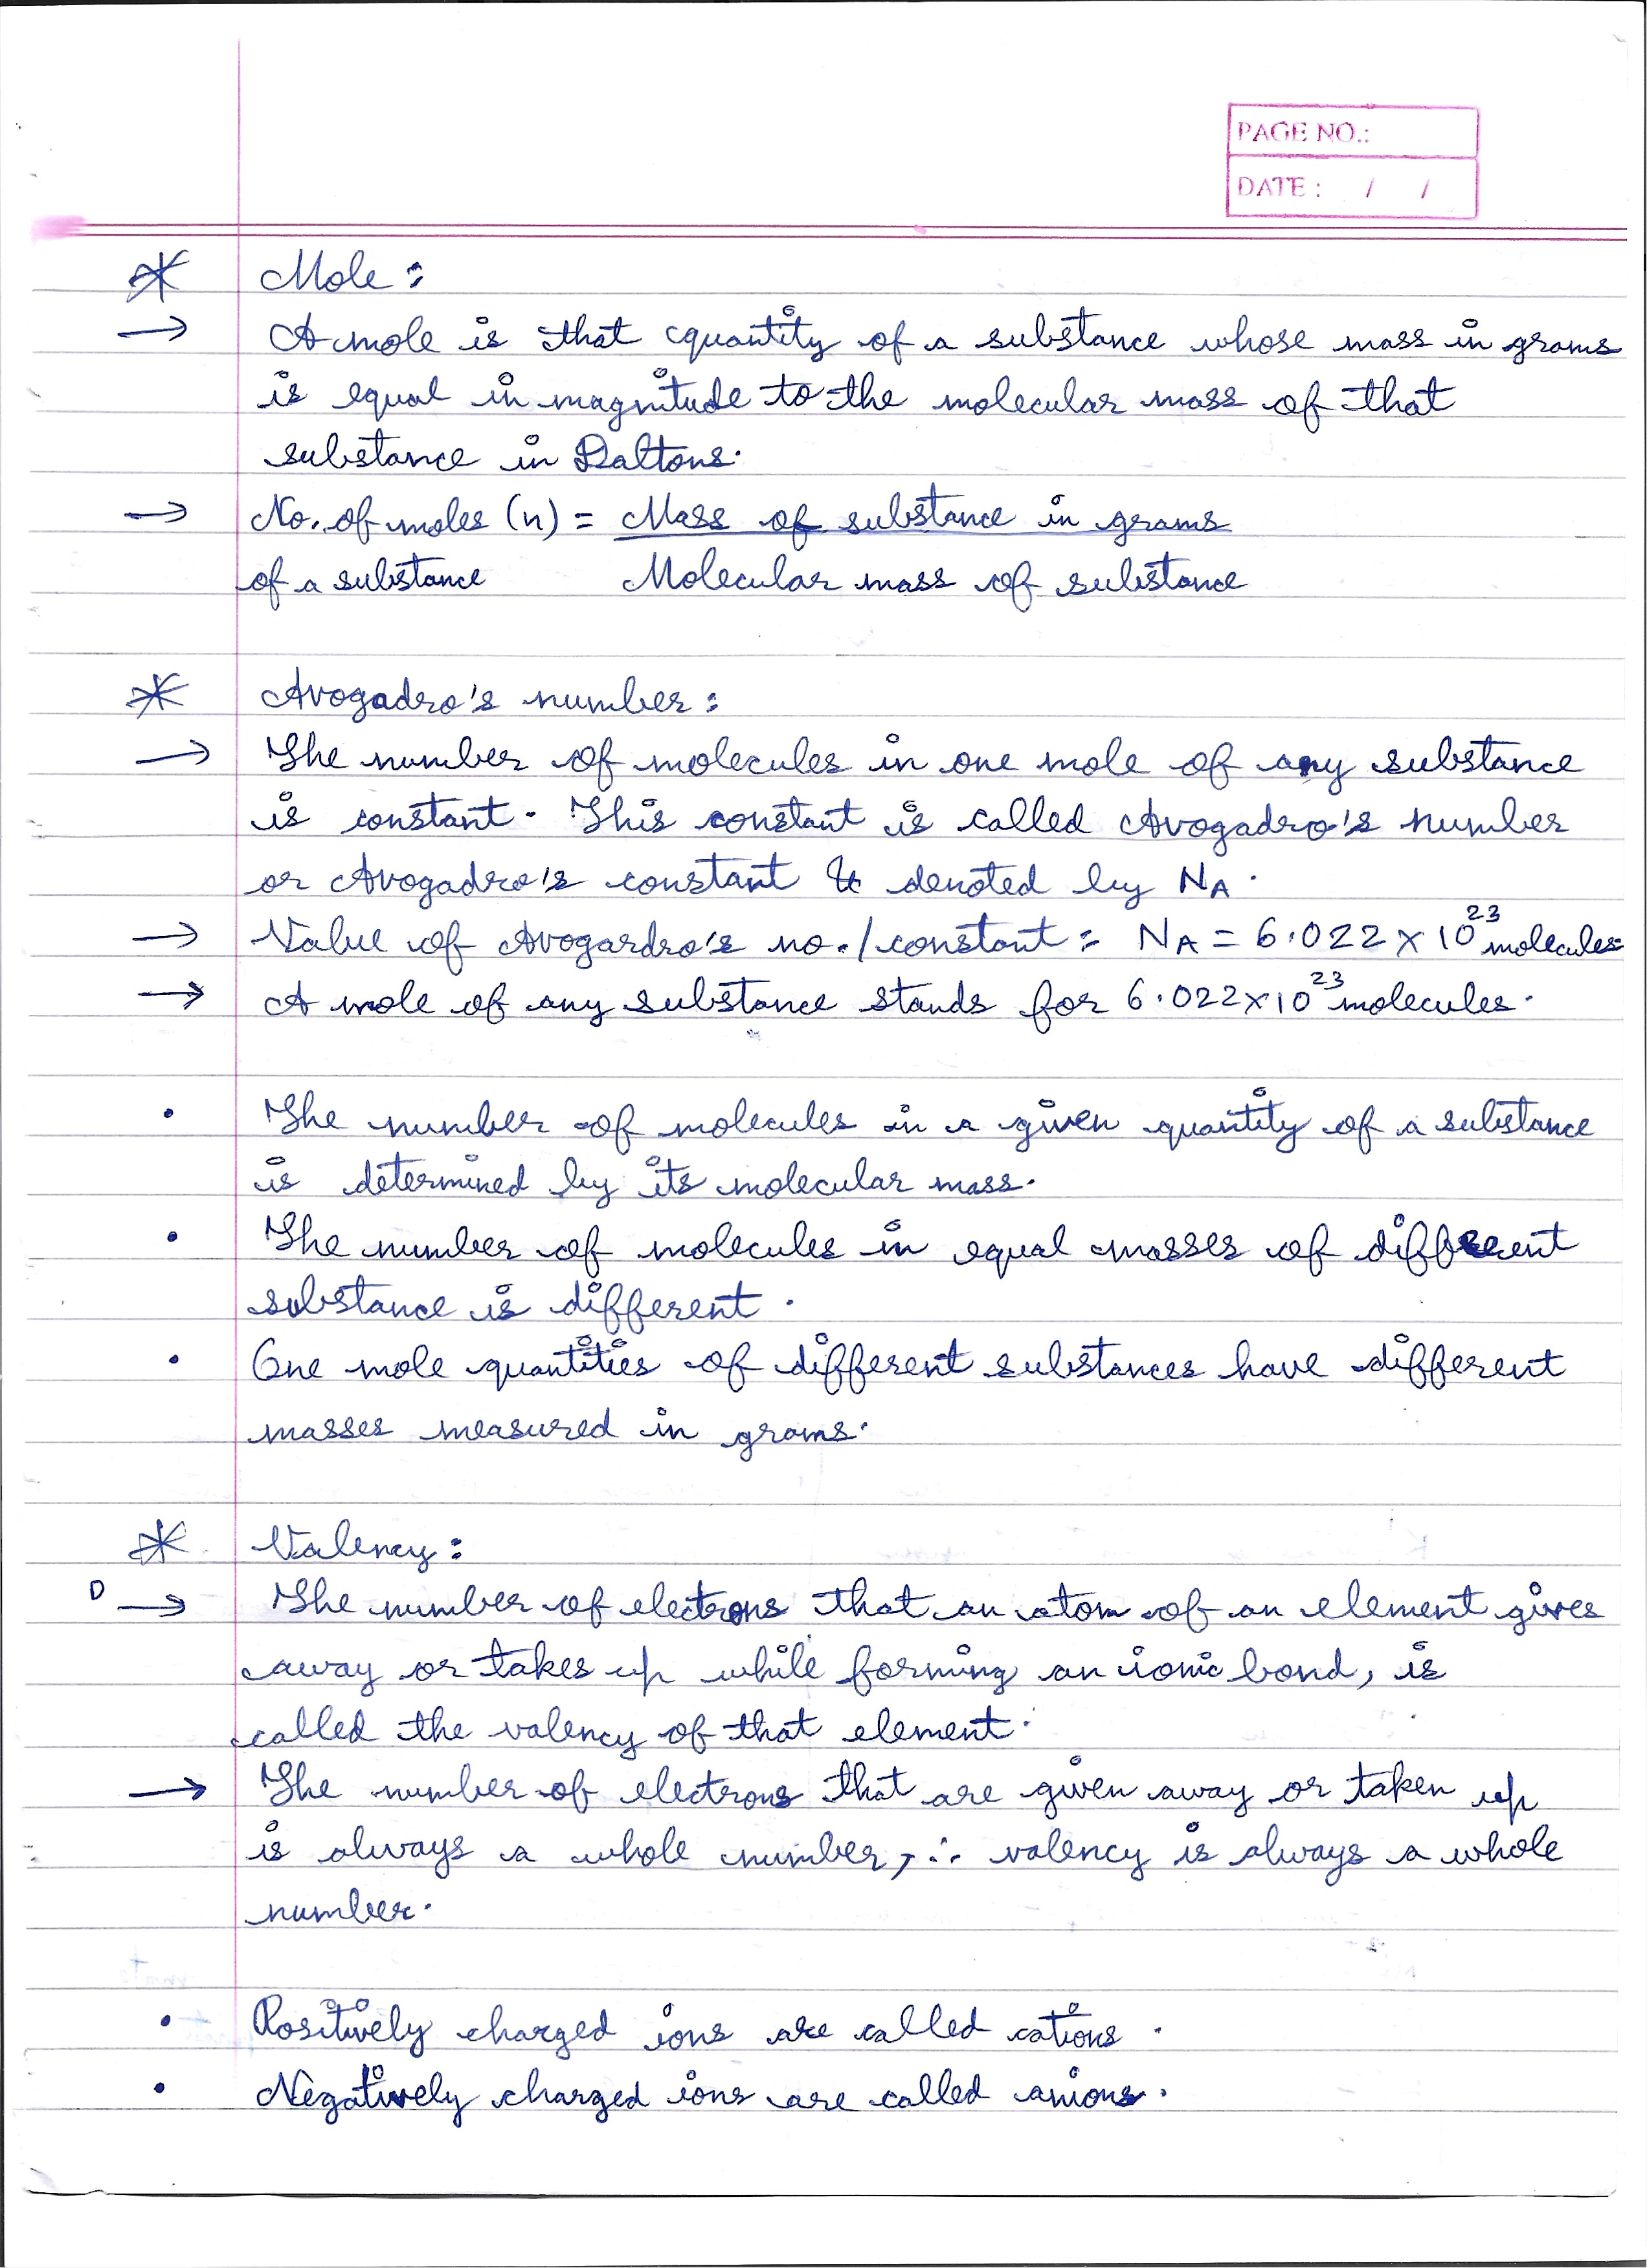 PAGE NO.:
DATE : / /
* Mole :
→ A mole is that quantity of a substance whose mass in grams
is equal in magnitude to the molecular mass of that
substance in Daltons.
→ No. of moles (n) = Mass of substance in grams
of a substance Molecular mass of substance
* Avogadro's number :
→ The number of molecules in one mole of any substance
is constant. This constant is called Avogadro's number
or Avogadro's constant & denoted by NA.
→ Value of Avogardro's no./constant : NA = 6.022 × 10²³ molecules
→ A mole of any substance stands for 6.022×10²³ molecules.
• The number of molecules in a given quantity of a substance
is determined by its molecular mass.
• The number of molecules in equal masses of different
substance is different.
• One mole quantities of different substances have different
masses measured in grams.
* Valency :
D → The number of electrons that an atom of an element gives
away or takes up while forming an ionic bond, is
called the valency of that element.
→ The number of electrons that are given away or taken up
is always a whole number, ∴ valency is always a whole
number.
• Positively charged ions are called cations.
• Negatively charged ions are called anions.